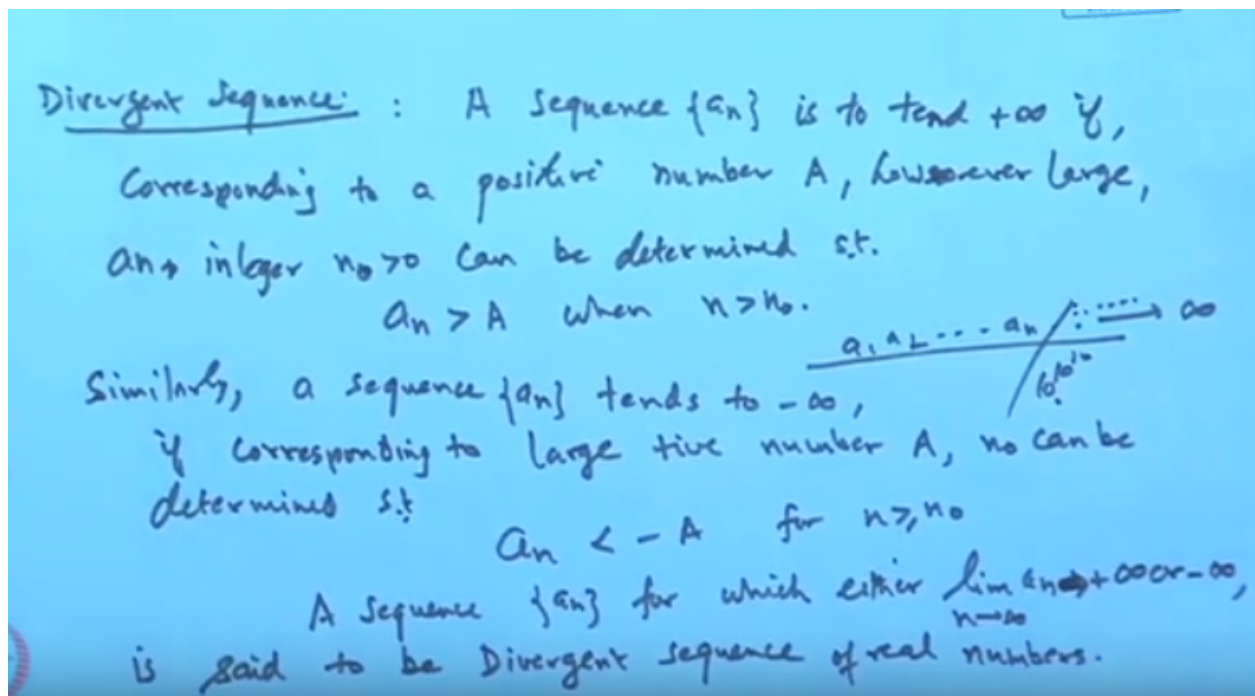 Divergent Sequence : A sequence {an} is to tend +∞ if,
Corresponding to a positive number A, howsoever large,
an integer n₀>0 can be determined s.t.
an > A when n>n₀.
a₁ a₂ ---- an ..... → ∞
10^10^10
Similarly, a sequence {an} tends to -∞,
if corresponding to large +ive number A, n₀ can be
determined s.t
an < -A for n≥n₀
A sequence {an} for which either lim an → +∞ or -∞,
n→∞
is said to be Divergent sequence of real numbers.